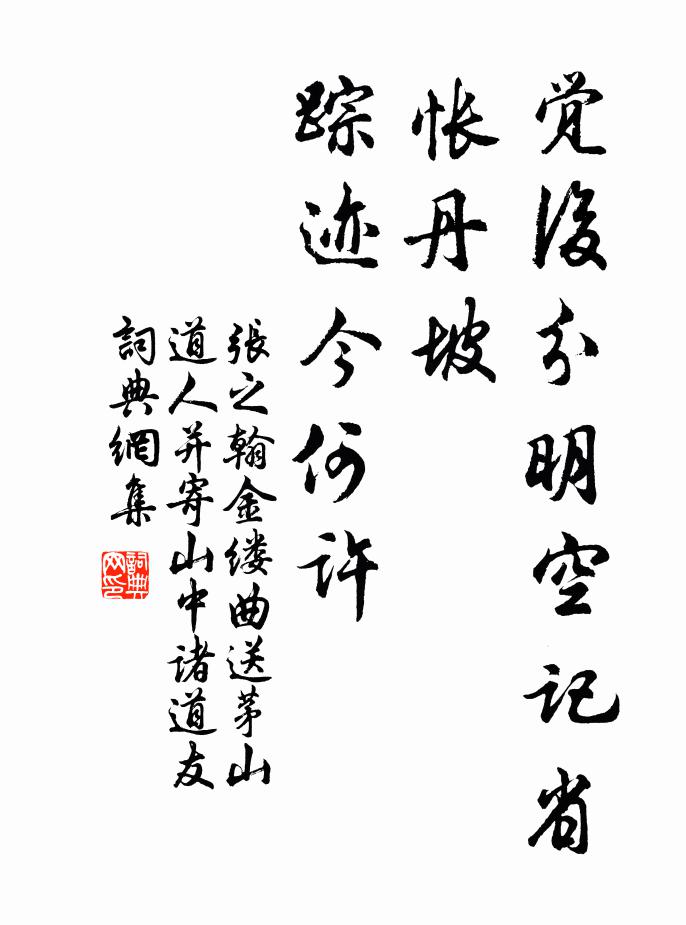 觉後分明空记省
怅丹坡
踪迹今何许
張之翰金缕曲送茅山
道人并寄山中诸道友
詞典網集
詞典
网印